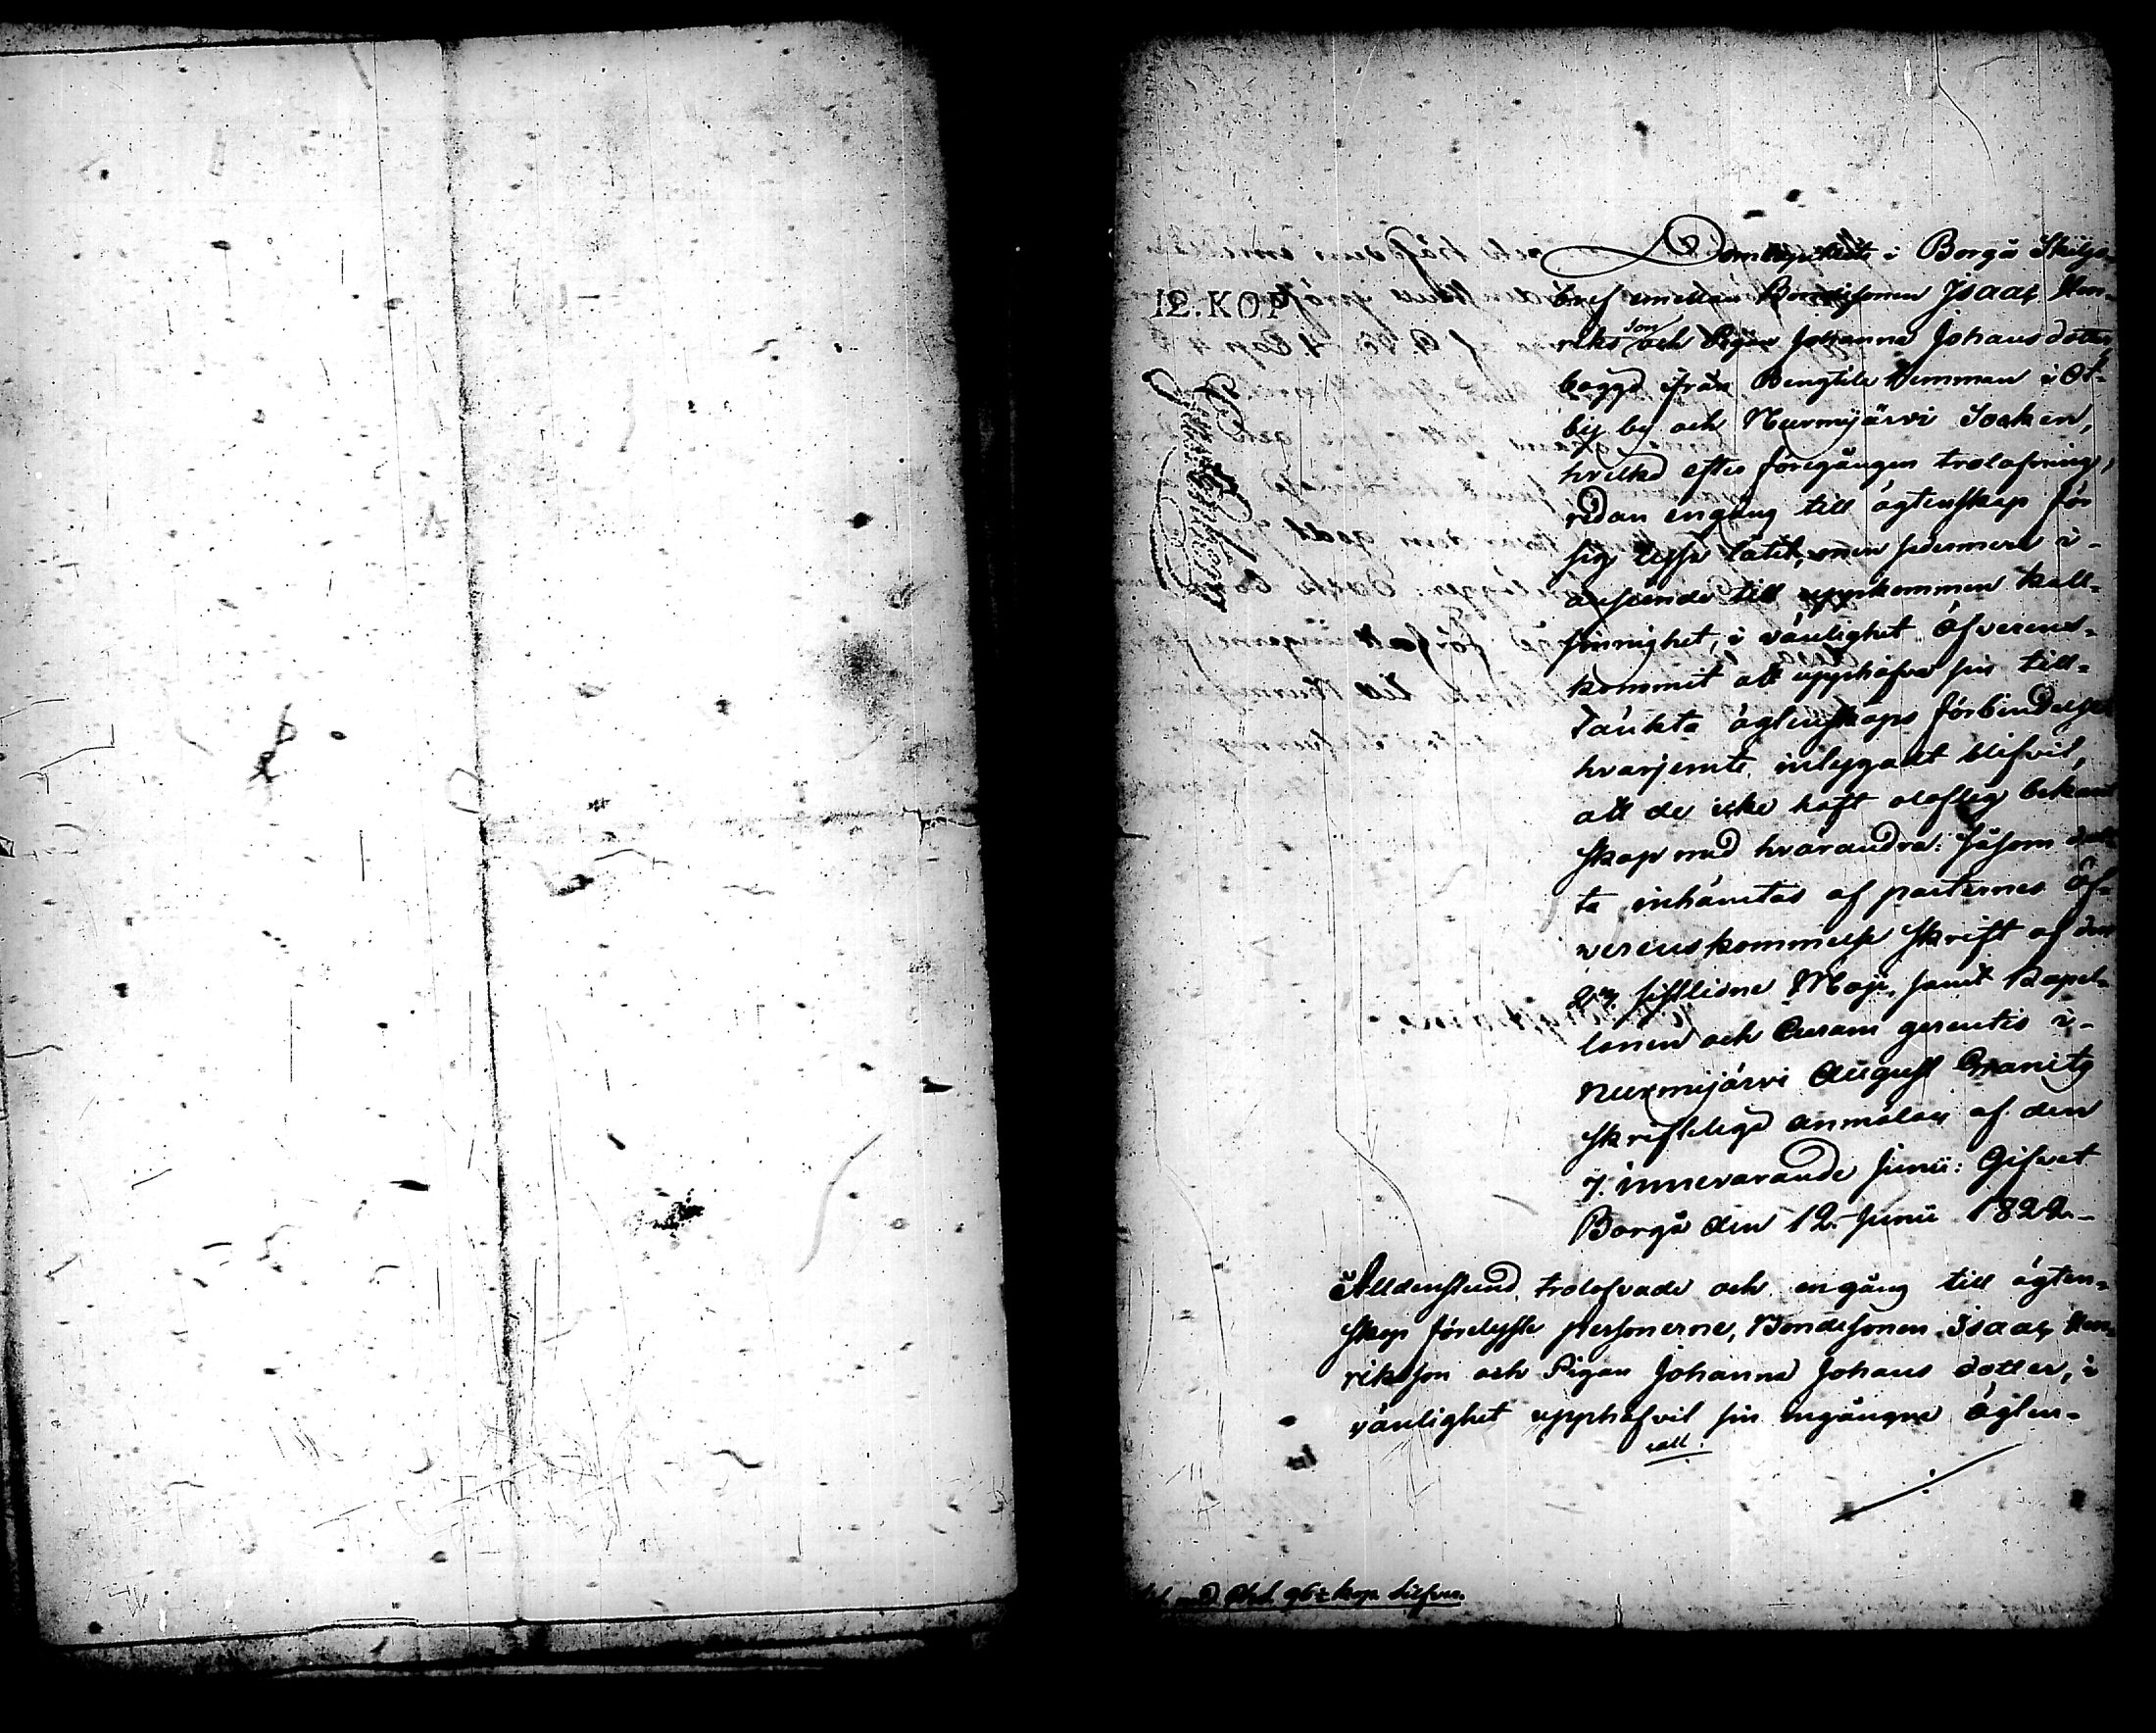 12. KOP.
Domkapitlets i Borgå Skiljo-
bref emellan Bondesonen Isaac Hen-
riks son och Pigan Johanna Johansdotter,
begge ifrån Bengtila Hemman i Ot-
by by och Nurmijärvi Socken,
hvilka efter föregången trolofning,
redan engång till ägtenskap för
sig lyssa låtit, men sedermera i
anseende till uppkommen kall-
sinnighet, i vänlighet öfverens-
kommit att upphäfva sin till-
tänkta ägtenskaps förbindelse
hvarjemte intygadt blifvit,
att de icke haft oloflig bekant
skap med hvarandra: såsom det-
ta inhämtas af parternes öf-
verenskommelse skrift af den
sistlidne Maji, samt Kapel-
lanen och Curam gerentis i
Nurmijärvi August Granitz
skriftliga anmälan af den
7. innevarande Junii: Gifvet
Borgå den 12. Junii 1822.
Alldenstund trolofvade och engång till ägten-
skap förelyste personerne, Bondesonen Isaac Hen-
riksson och Pigan Johanna Johans dotter, i
vänlighet upphäfvit sin ingångne ägten-
kop. silfver.